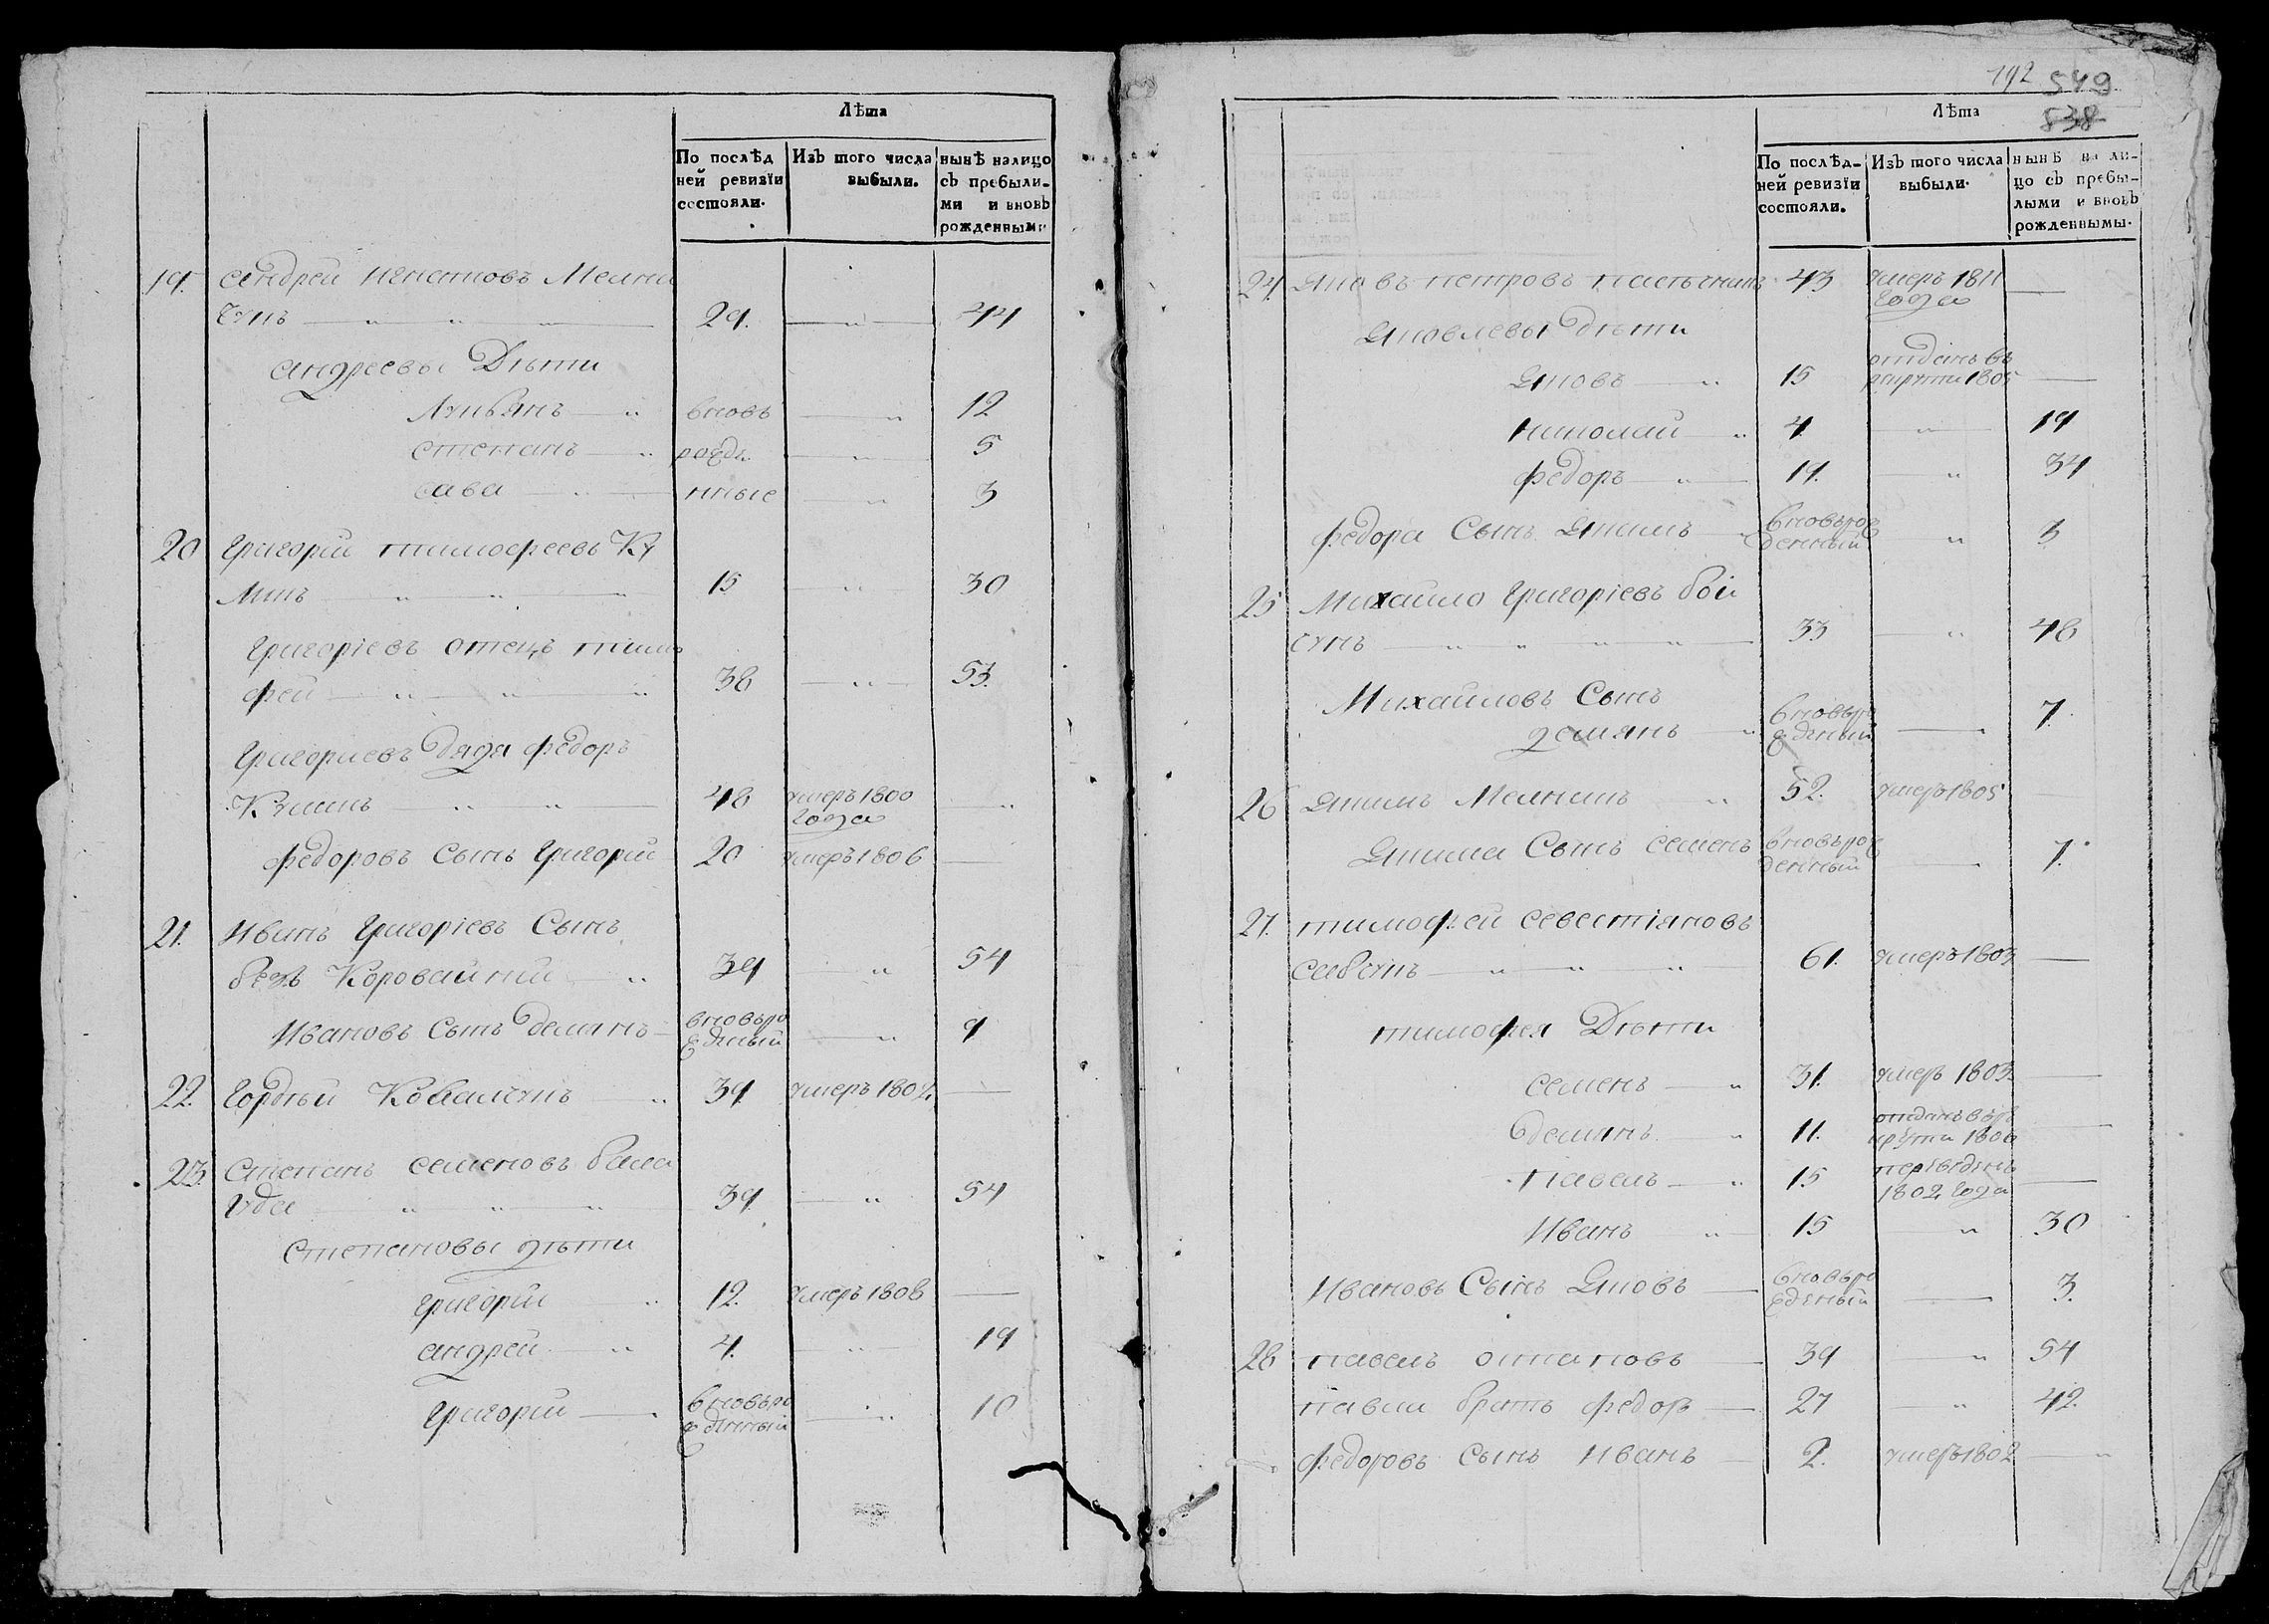 Лѣта
По послѣд
ней ревизїи
состояли.
Изъ того числа
выбыли.
нынѣ налицо
съ пребыли-
ми и вновь
рожденными
19. андрей игнатовъ Мелни
чукъ 29. 44
андреевы Дѣти
Лукьянъ вновь 12
степанъ рожде 5
сава нные 3
20 григорий тимофеевъ Ку
ликъ 15 30
григоріевъ отецъ тимо
фей 38 53.
григориевъ дядя федоръ
Куликъ 48 умеръ 1800
года
федоровъ сынъ григорий 20 умеръ 1806
21. Иванъ григоріевъ Сынъ
безъ Коровайний 39 54
Ивановъ сынъ демянъ вновьро
жденый 9
22. гордѣй Ковалчукъ 39. умеръ 1802.
23. Степанъ семеновъ бала
уда 39. 54
степановы дѣти
григорий 12. умеръ 1808
андрей 4. 19
григорий вновьро
жденный 10
192 549
538
Лѣта
По послѣд-
ней ревизїи
состояли.
Изъ того числа
выбыли.
нынѣ на ли-
цо съ пребы-
лыми и вновь
рожденнымы.
24. яковъ петровъ 43 умеръ 1811
года
яковлевы дѣти
яковъ 15 отданъ въ
рекрути 1805
николай 4. 19
федоръ 19. 34
федора Сынъ якимъ вновьрож
денный 3
25 Михайло григоріевъ бой
чукъ 33 48
Михайловъ Сынъ
демянъ вновьро
жденый 7.
26 якимъ Мелникъ 52. умеръ 1805
якима Сынъ семенъ вновьрож
денный 7.
27. тимофей севестіяновъ
савчукъ 61. умеръ 1803
тимофея Дѣти
семенъ 31. умеръ 1803.
демянъ 11. отданъ въ ре
крути 1806
павелъ 15 переведенъ
1802 года
Иванъ 15 30
Ивановъ Сынъ яковъ вновьро
жденый 3.
28 павелъ остаповъ 39 54
павла братъ федоръ 27 42.
федоровъ сынъ иванъ 2. умеръ 1802